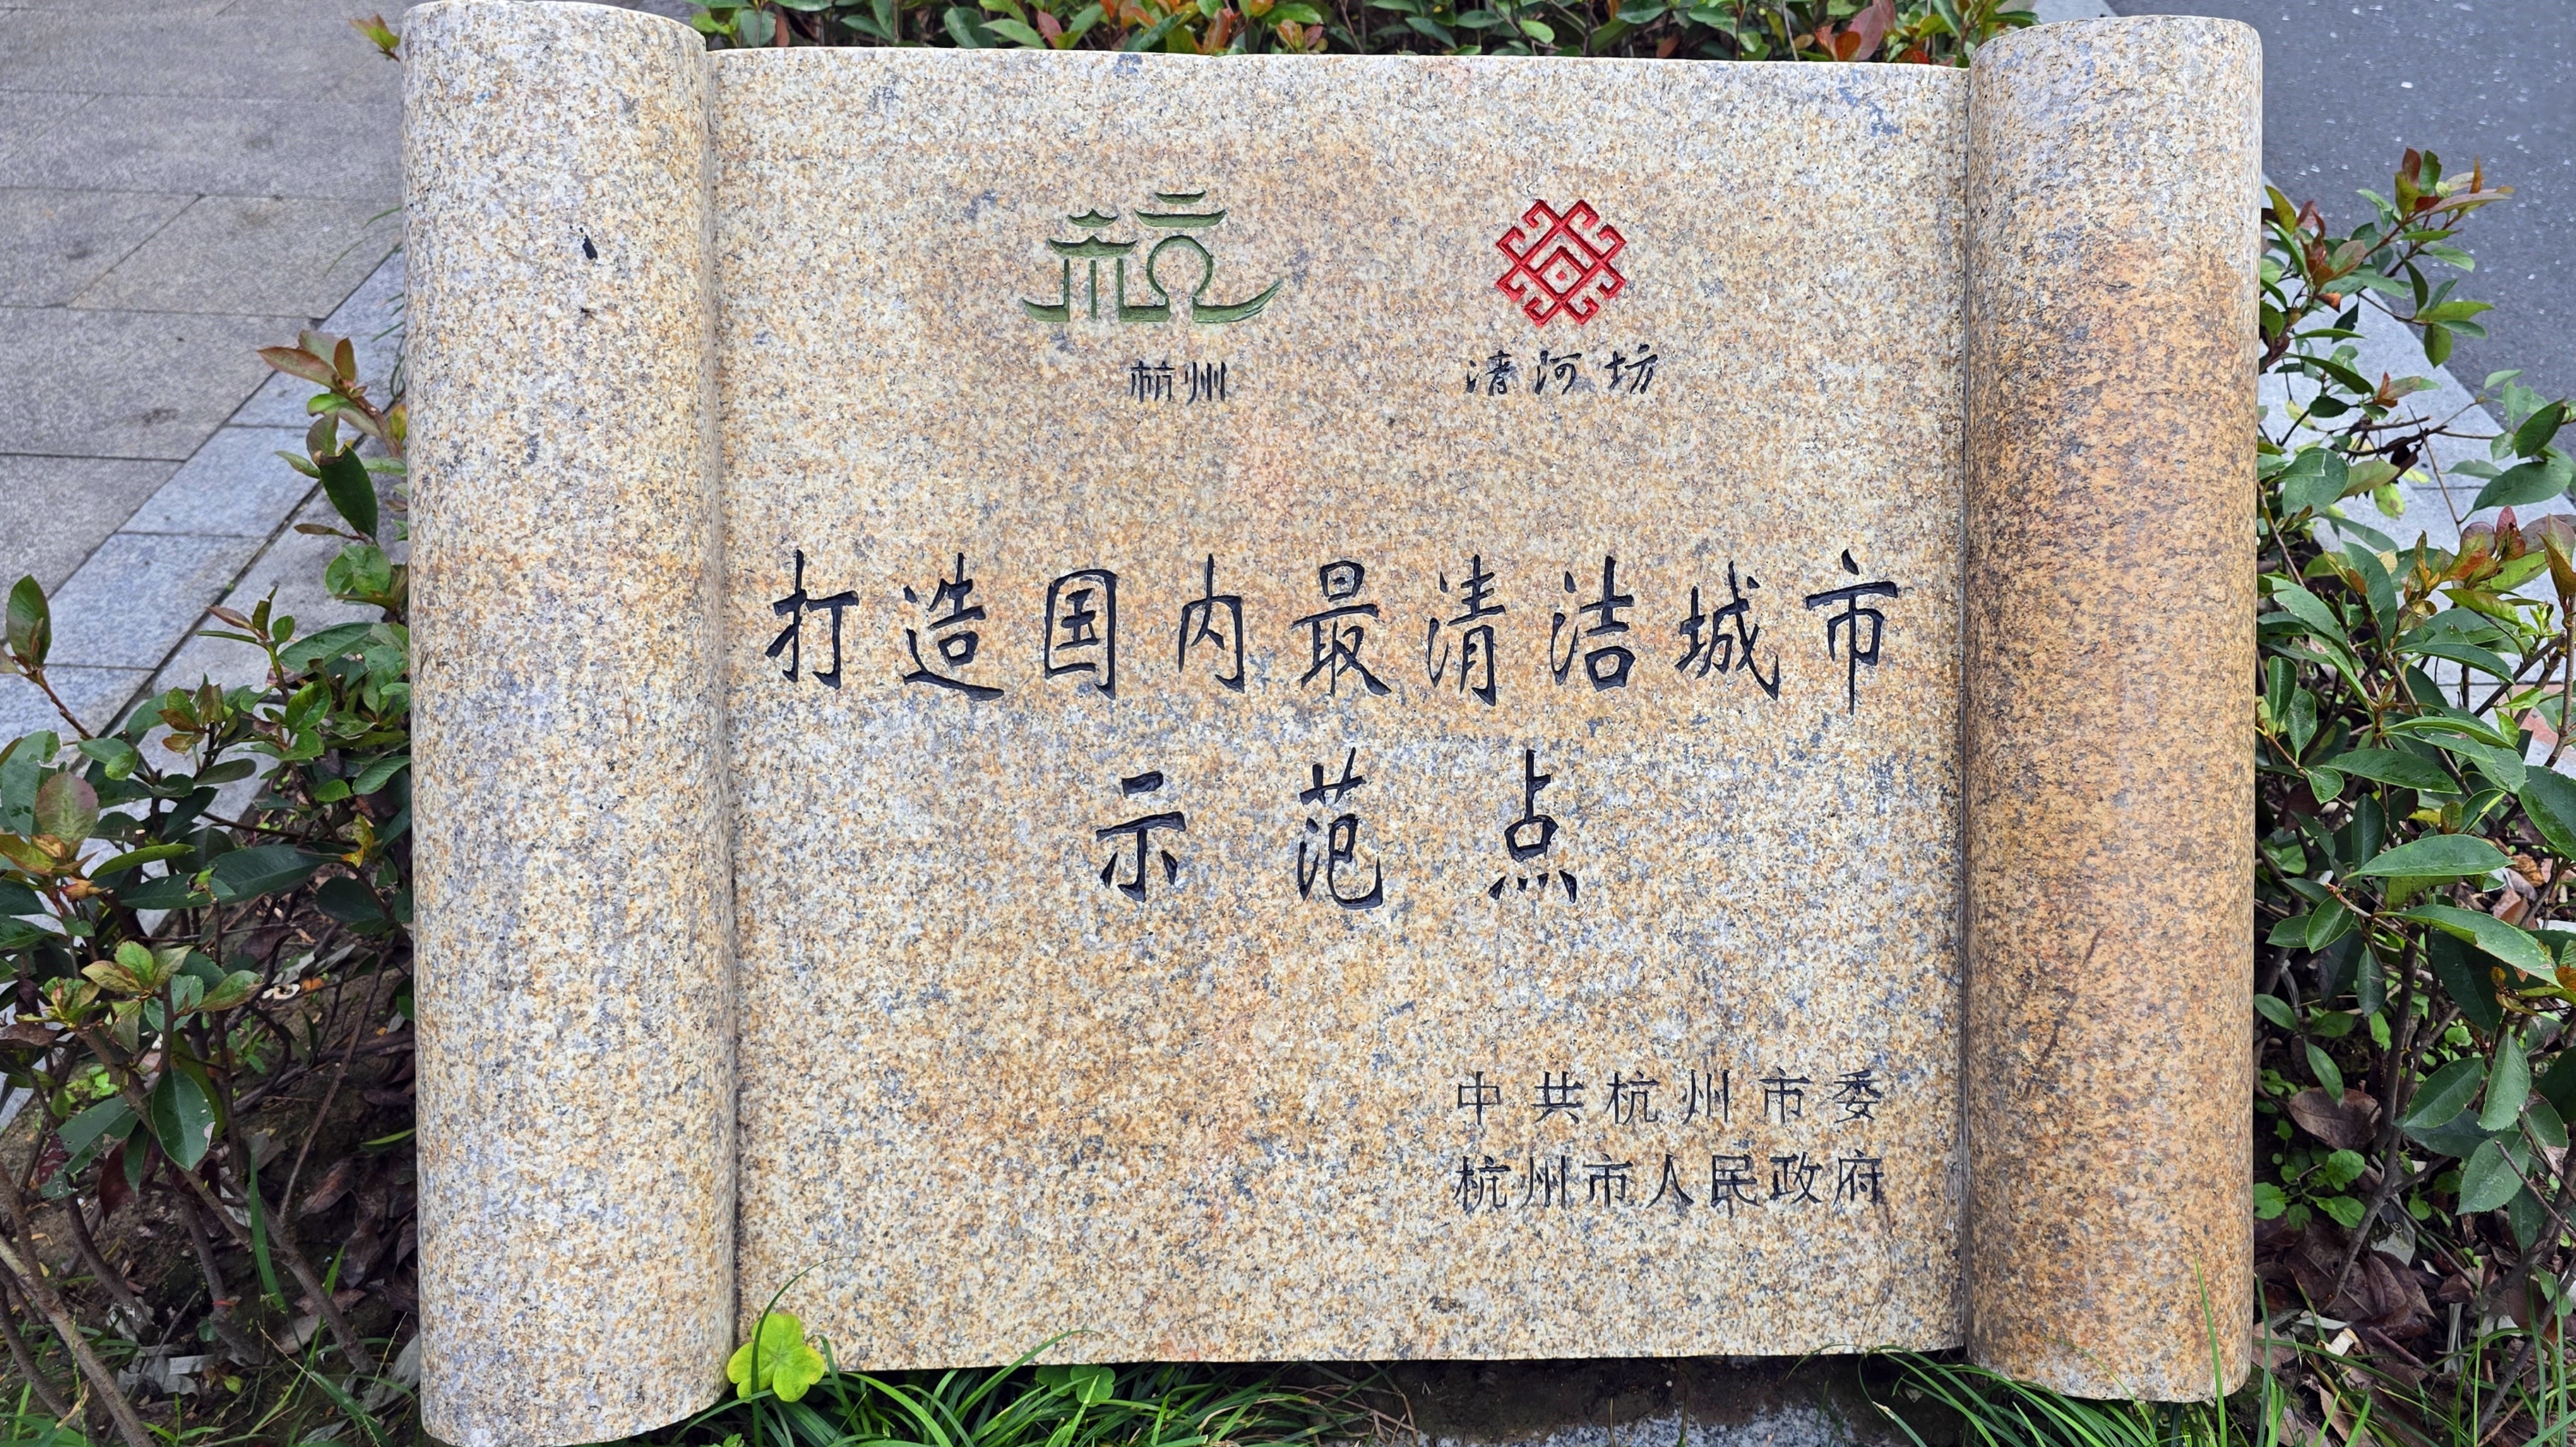 杭
杭州 清河坊
打造国内最清洁城市
示范点
中共杭州市委
杭州市人民政府